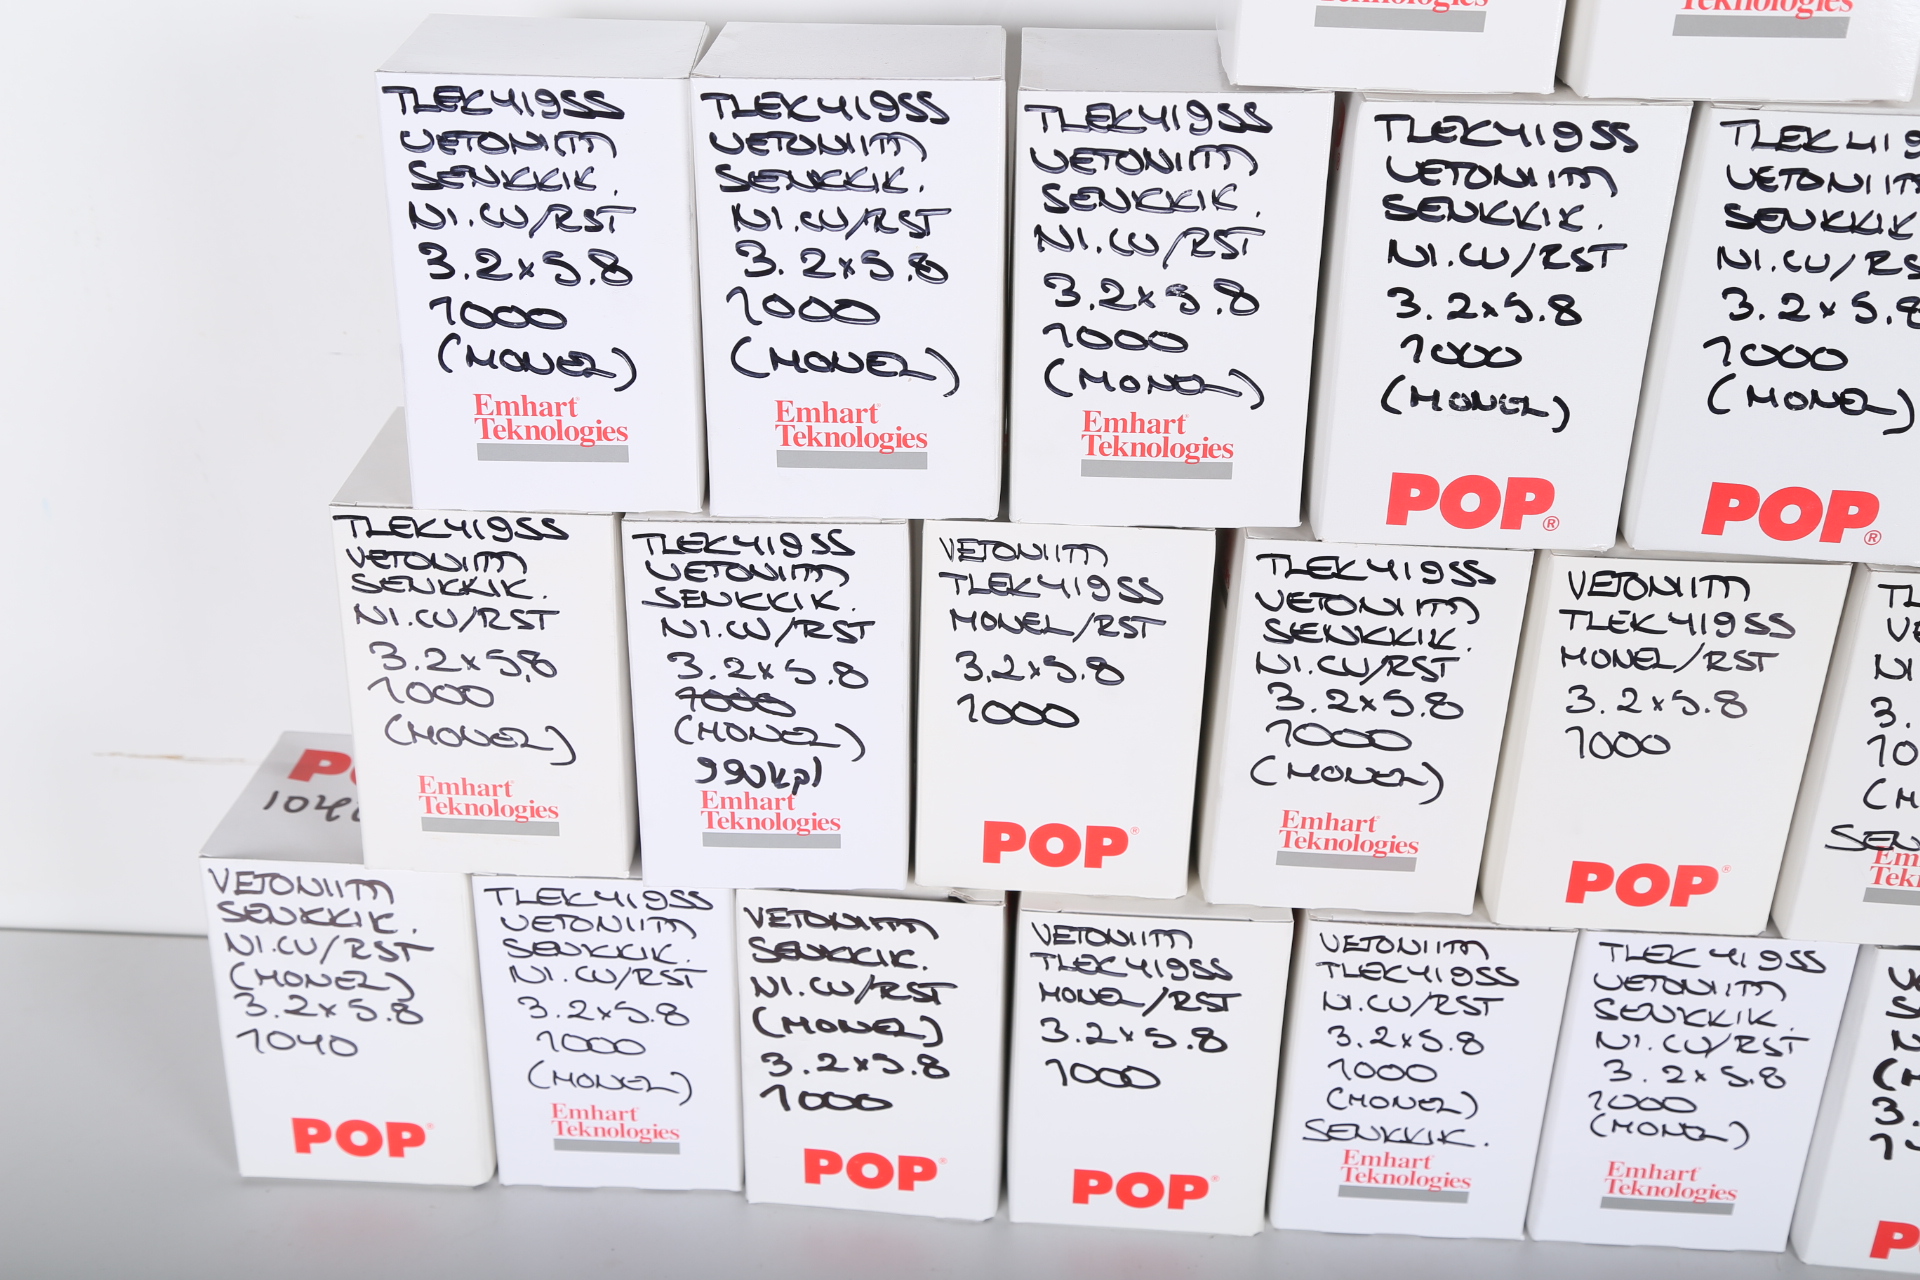 Teknologies
Teknologies
TLEK419SS
VETONIITTI
SENKKIK.
NI.CU/RST
3.2x5.8
1000
(MONEL)
Emhart
Teknologies
TLEK419SS
VETONIITTI
SENKKIK.
NI.CU/RST
3.2x5.8
1000
(MONEL)
Emhart
Teknologies
TLEK419SS
VETONIITTI
SENKKIK.
NI.CU/RST
3.2x5.8
1000
(MONEL)
Emhart
Teknologies
TLEK419SS
VETONIITTI
SENKKIK.
NI.CU/RST
3.2x5.8
1000
(MONEL)
POP®
TLEK419
VETONIITT
SENKKIK
NI.CU/RS
3.2x5.8
1000
(MONEL)
POP®
TLEK419SS
VETONIITTI
SENKKIK.
NI.CU/RST
3.2x5,8
1000
(MONEL)
Emhart
Teknologies
TLEK419SS
VETONIITTI
SENKKIK.
NI.CU/RST
3.2x5.8
1000
(MONEL)
990kpl
Emhart
Teknologies
VETONIITTI
TLEK419SS
MONEL/RST
3,2x5.8
1000
POP®
TLEK419SS
VETONIITTI
SENKKIK.
NI.CU/RST
3.2x5.8
1000
(MONEL)
Emhart
Teknologies
VETONIITTI
TLEK419SS
MONEL/RST
3.2x5.8
1000
POP®
TL
VE
NI
3.
10
(M
SEN
Em
Tek
PO
104
VETONIITTI
SENKKIK.
NI.CU/RST
(MONEL)
3.2x5.8
1040
POP®
TLEK419SS
VETONIITTI
SENKKIK.
NI.CU/RST
3.2x5.8
1000
(MONEL)
Emhart
Teknologies
VETONIITTI
SENKKIK.
NI.CU/RST
(MONEL)
3.2x5.8
1000
POP®
VETONIITTI
TLEK419SS
MONEL/RST
3.2x5.8
1000
POP®
VETONIITTI
TLEK419SS
NI.CU/RST
3.2x5.8
1000
(MONEL)
SENKKIK.
Emhart
Teknologies
TLEK419SS
VETONIITTI
SENKKIK.
NI.CU/RST
3.2x5.8
1000
(MONEL)
Emhart
Teknologies
VE
S
N
(M
3.
1
P